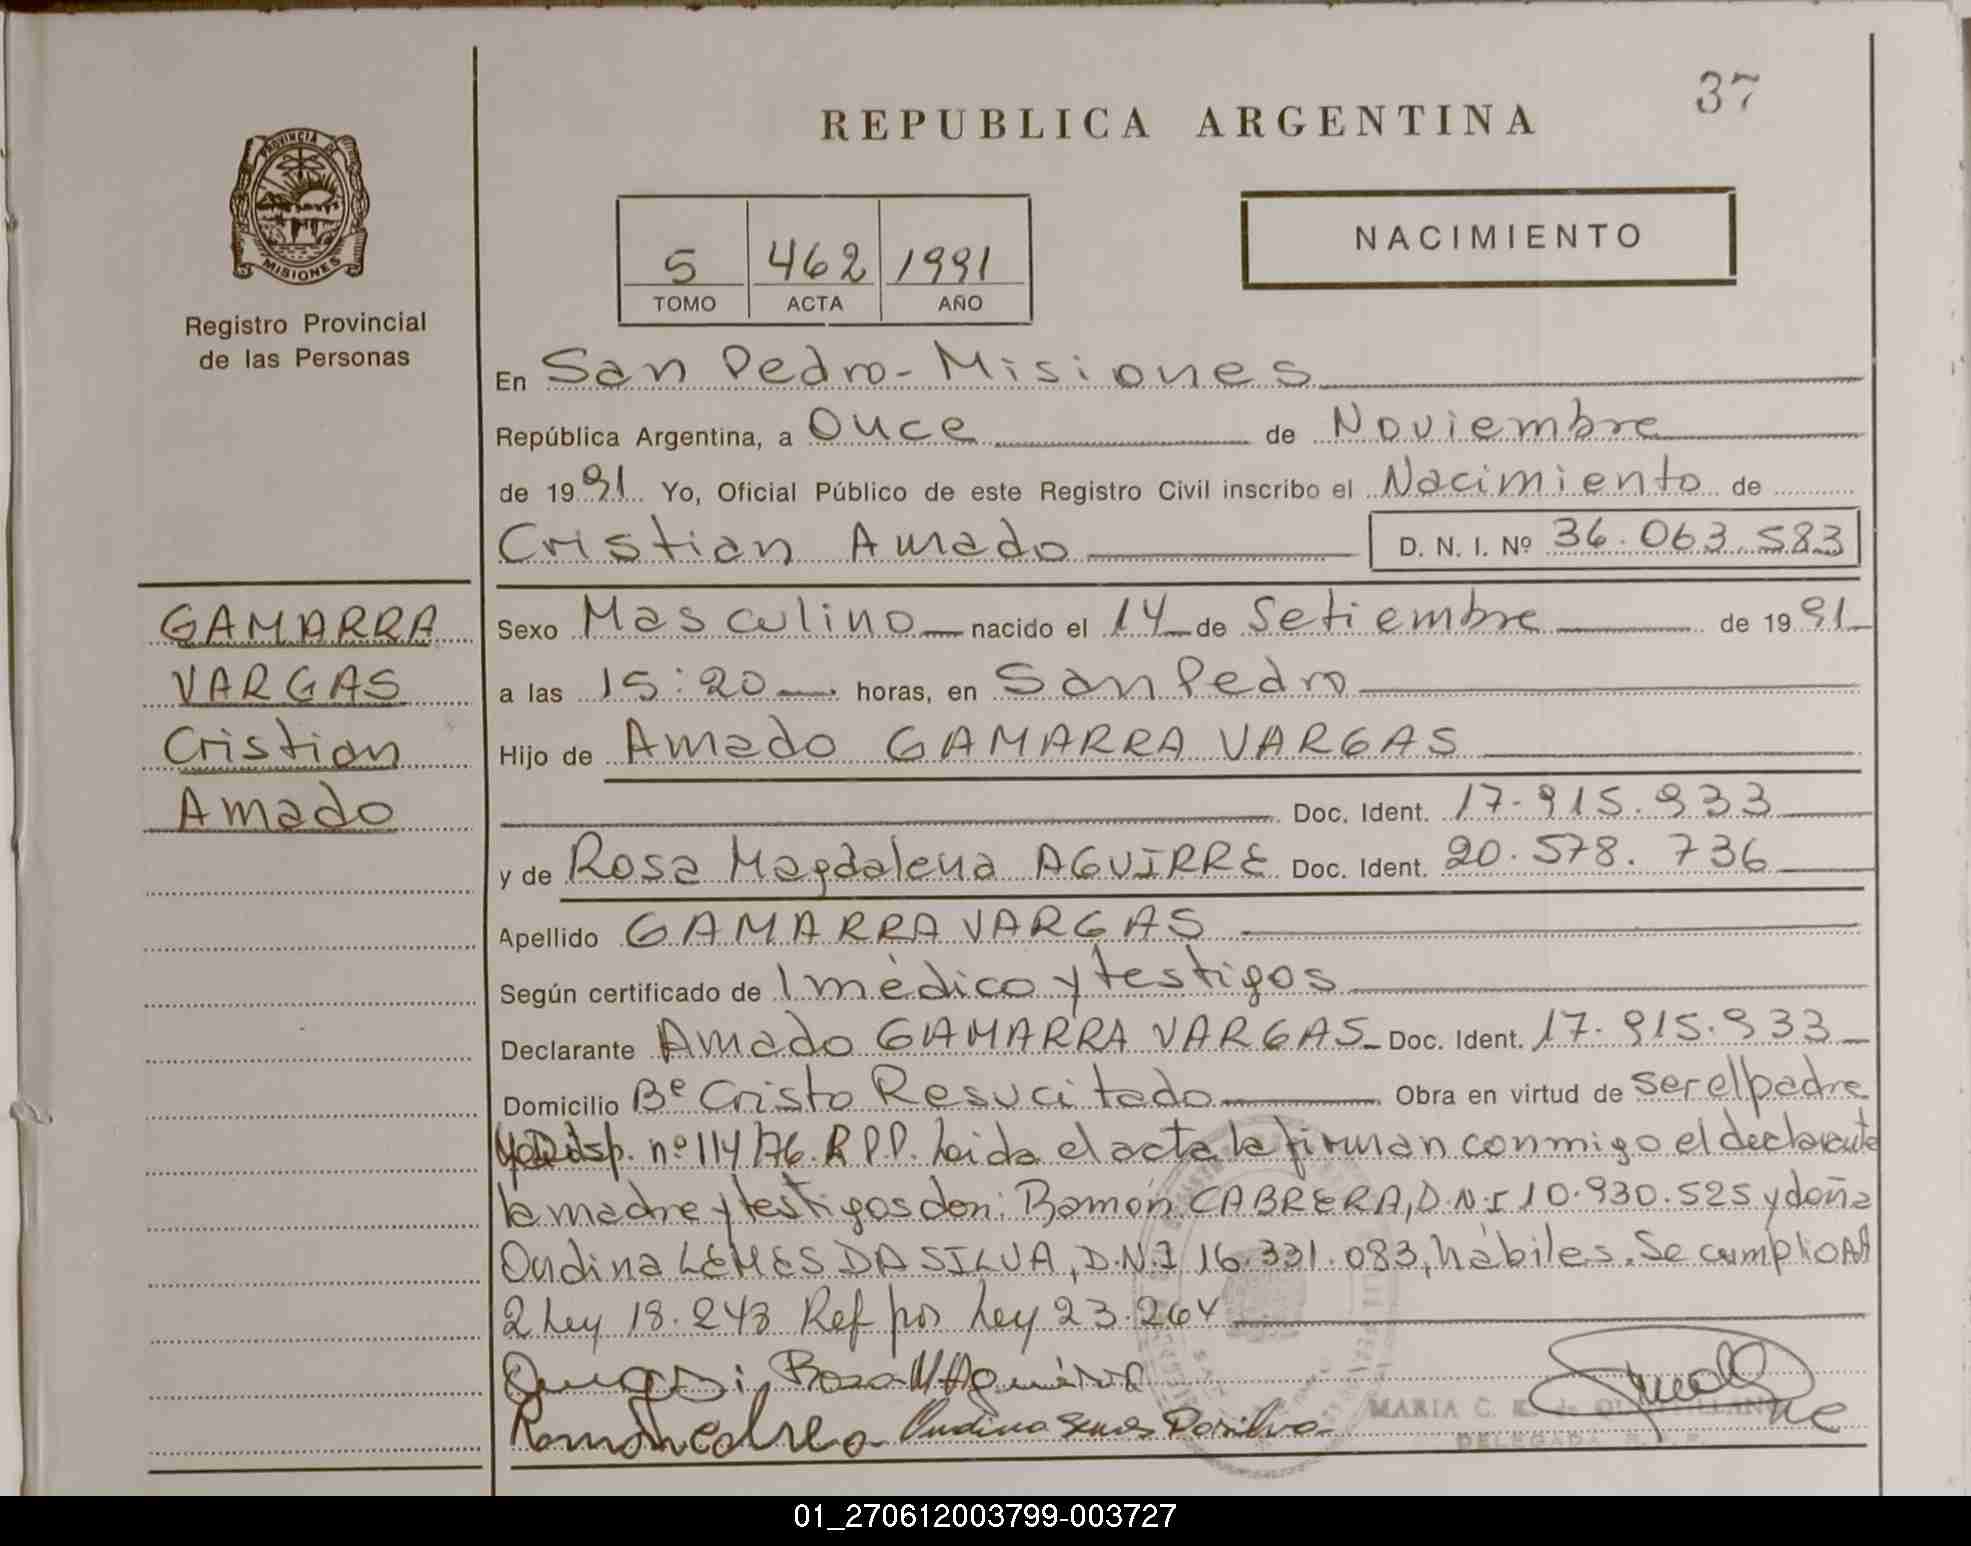 37
REPUBLICA ARGENTINA
PROVINCIA DE
MISIONES
Registro Provincial
de las Personas
5 462 1991
TOMO ACTA AÑO
NACIMIENTO
En San Pedro - Misiones
República Argentina, a Once de Noviembre
de 1991 Yo, Oficial Público de este Registro Civil inscribo el Nacimiento de
Cristian Amado D. N. I. Nº 36.063.583
GAMARRA
VARGAS
Cristian
Amado
Sexo Masculino nacido el 14 de Setiembre de 1991
a las 15:20 horas, en San Pedro
Hijo de Amado GAMARRA VARGAS
Doc. Ident. 17.915.933
y de Rosa Magdalena AGUIRRE Doc. Ident. 20.578.736
Apellido GAMARRA VARGAS
Según certificado de 1 médico y testigos
Declarante Amado GAMARRA VARGAS Doc. Ident. 17.915.933
Domicilio Bº Cristo Resucitado Obra en virtud de ser el padre
disp. nº 114/76. R P.P. Leida el acta la firman conmigo el declarante
la madre y testigos don: Ramón CABRERA, D.N.I 10.930.525 y doña
Ondina LEMES DA SILVA, D.N.I 16.331.083, hábiles. Se cumplio
2 Ley 18.248 Ref por Ley 23.264
Rosa M Aguirre
Ramón Ondina Dasilva
MARIA C.
DELEGADA
01_270612003799-003727